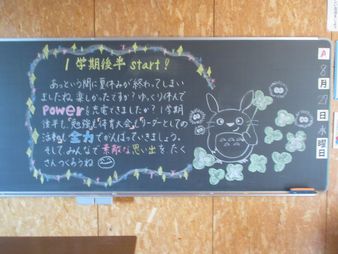 1学期後半 start!
あっという間に夏休みが終わってしまい
ましたね。楽しかったですか？ゆっくり休んで
powerを充電できましたか？1学期
後半も、勉強も
リーダーとしての
活動も全力でがんばっていきましょう。
そして、みんなで素敵な思い出をたく
さんつくろうね
8
月
日
水
曜
日